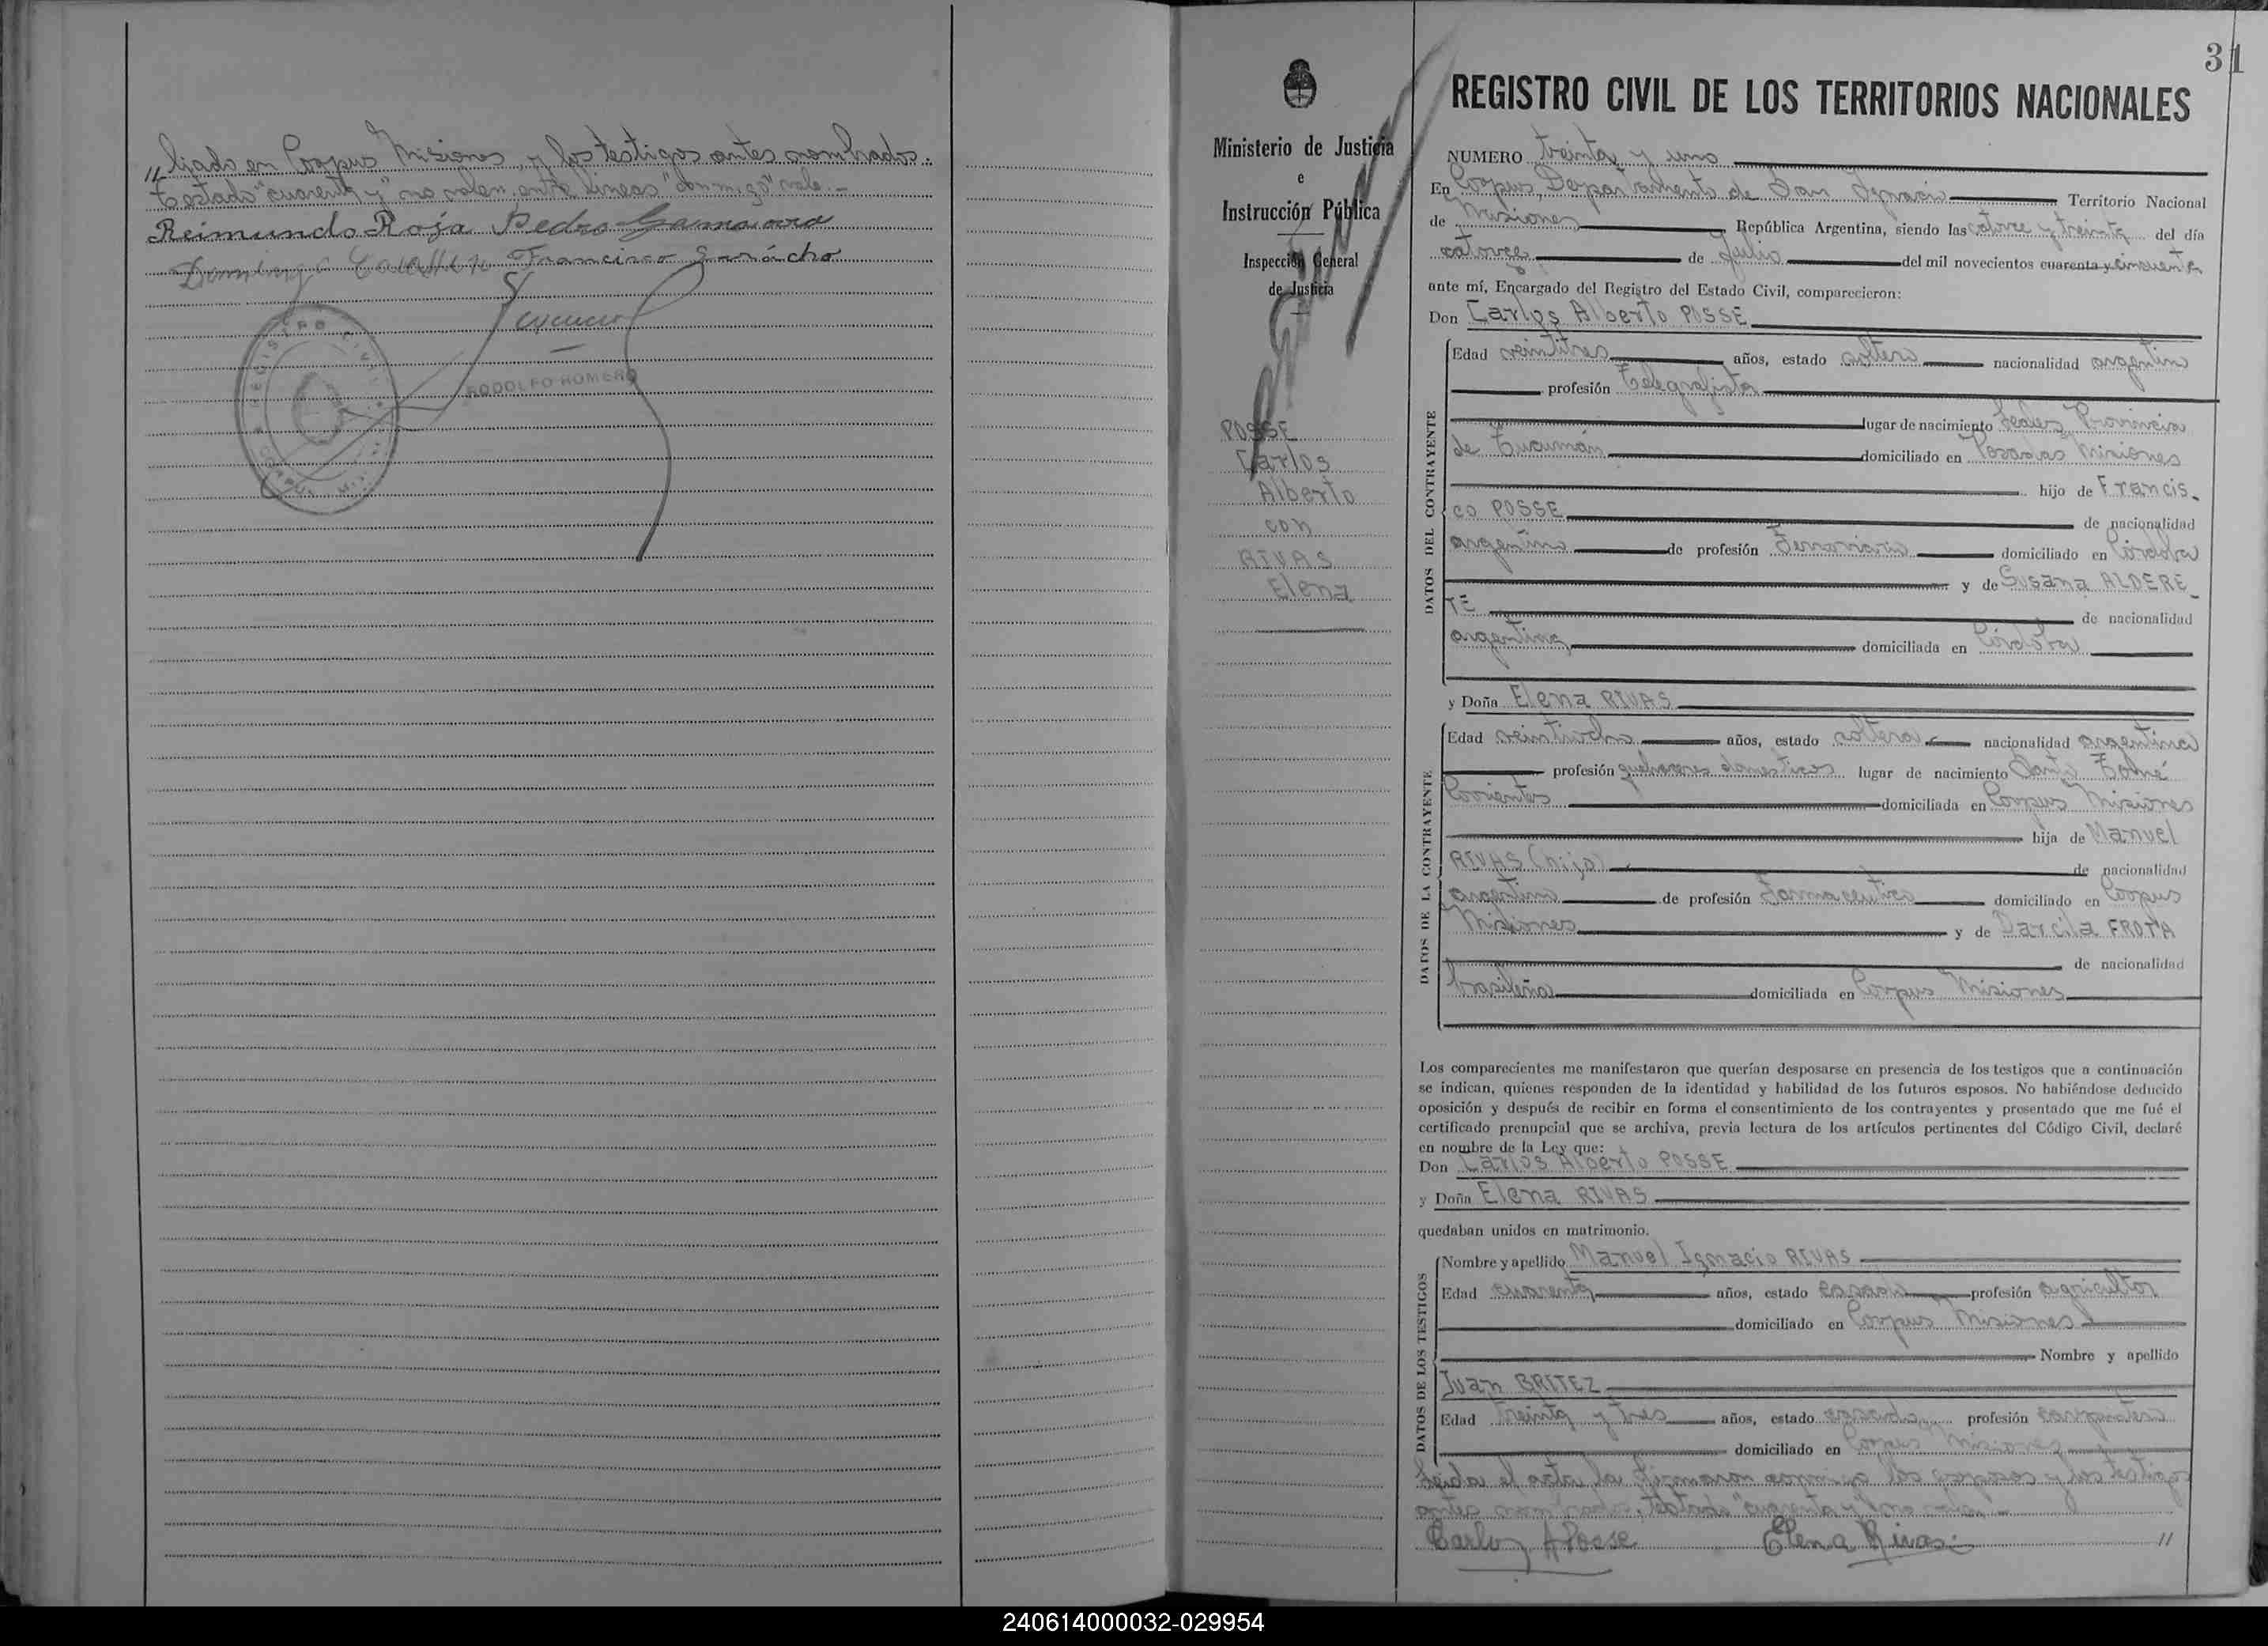 "liado en Corpus Misiones, y los testigos antes nombrados.
Testado "cuarenta y" no valen, entre líneas "conmigo" vale.-
Reimundo Roja Pedro Gamarra
Domingo Francisco
REGISTRO CIVIL
RODOLFO ROMERO
CORPUS
31
Ministerio de Justicia
e
Instrucción Pública
Inspección General
de Justicia
POSSE
Carlos
Alberto
con
RIVAS
Elena
REGISTRO CIVIL DE LOS TERRITORIOS NACIONALES
NUMERO treinta y uno
En Corpus, Departamento de San Ignacio Territorio Nacional
de Misiones República Argentina, siendo las catorce y treinta del día
catorce de Julio del mil novecientos cuarenta y cincuenta
ante mí, Encargado del Registro del Estado Civil, comparecieron:
Don Carlos Alberto POSSE
DATOS DEL CONTRAYENTE
Edad veintitres años, estado soltero nacionalidad argentino
profesión Telegrafista
lugar de nacimiento Leales Provincia
de Tucumán domiciliado en Posadas Misiones
hijo de Francis-
co POSSE de nacionalidad
argentino de profesión Ferroviario domiciliado en Córdoba
y de Susana ALDERE-
TE de nacionalidad
argentina domiciliada en Córdoba
y Doña Elena RIVAS
DATOS DE LA CONTRAYENTE
Edad veintiocho años, estado soltera nacionalidad argentina
profesión quehaceres domesticos lugar de nacimiento Santo Tomé
Corrientes domiciliada en Corpus Misiones
hija de Manuel
RIVAS (hijo) de nacionalidad
argentino de profesión Farmaceutico domiciliado en Corpus
Misiones y de Darcila FROTA
de nacionalidad
brasileña domiciliada en Corpus Misiones
Los comparecientes me manifestaron que querían desposarse en presencia de los testigos que a continuación
se indican, quienes responden de la identidad y habilidad de los futuros esposos. No habiéndose deducido
oposición y después de recibir en forma el consentimiento de los contrayentes y presentado que me fué el
certificado prenupcial que se archiva, previa lectura de los artículos pertinentes del Código Civil, declaré
en nombre de la Ley que:
Don Carlos Alberto POSSE
y Doña Elena RIVAS
quedaban unidos en matrimonio.
DATOS DE LOS TESTIGOS
Nombre y apellido Manuel Ignacio RIVAS
Edad cuarenta años, estado casado profesión agricultor
domiciliado en Corpus Misiones
Nombre y apellido
Juan BRITEZ
Edad treinta y tres años, estado casado profesión carpintero
domiciliado en Corpus Misiones
Leida el acta la firmaron conmigo los esposos y los testigos
antes nombrados, testado "cuarenta y" no valen.-
Carlos A Posse Elena Rivas "
240614000032-029954